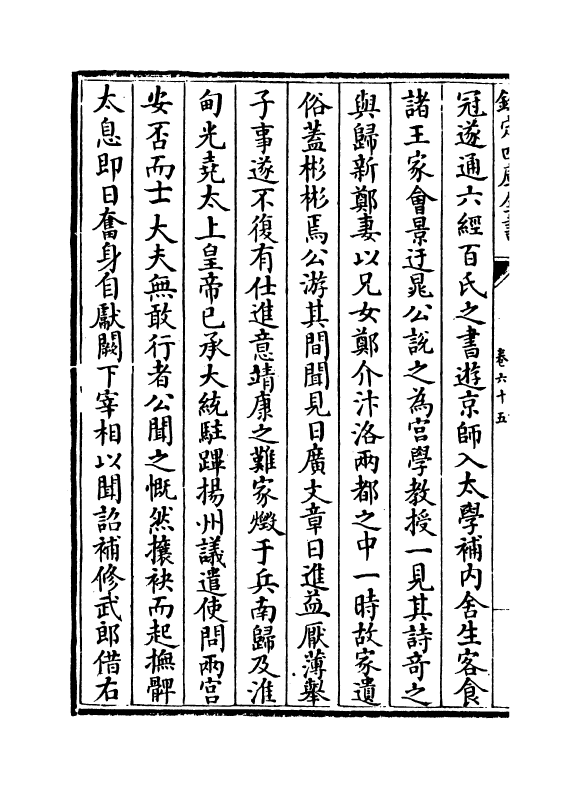 欽定四庫全書
卷六十五
冠遂通六經百氏之書遊京師入太學補内舍生客食
諸王家會景迂晁公說之為宫學教授一見其詩奇之
與歸新鄭妻以兄女鄭介汴洛兩都之中一時故家遺
俗蓋彬彬焉公游其間聞見日廣文章日進益厭薄舉
子事遂不復有仕進意靖康之難家燬于兵南歸及淮
甸光堯太上皇帝已承大統駐蹕揚州議遣使問兩宫
安否而士大夫無敢行者公聞之慨然攘袂而起撫髀
太息即日奮身自獻闕下宰相以聞詔補修武郎借右